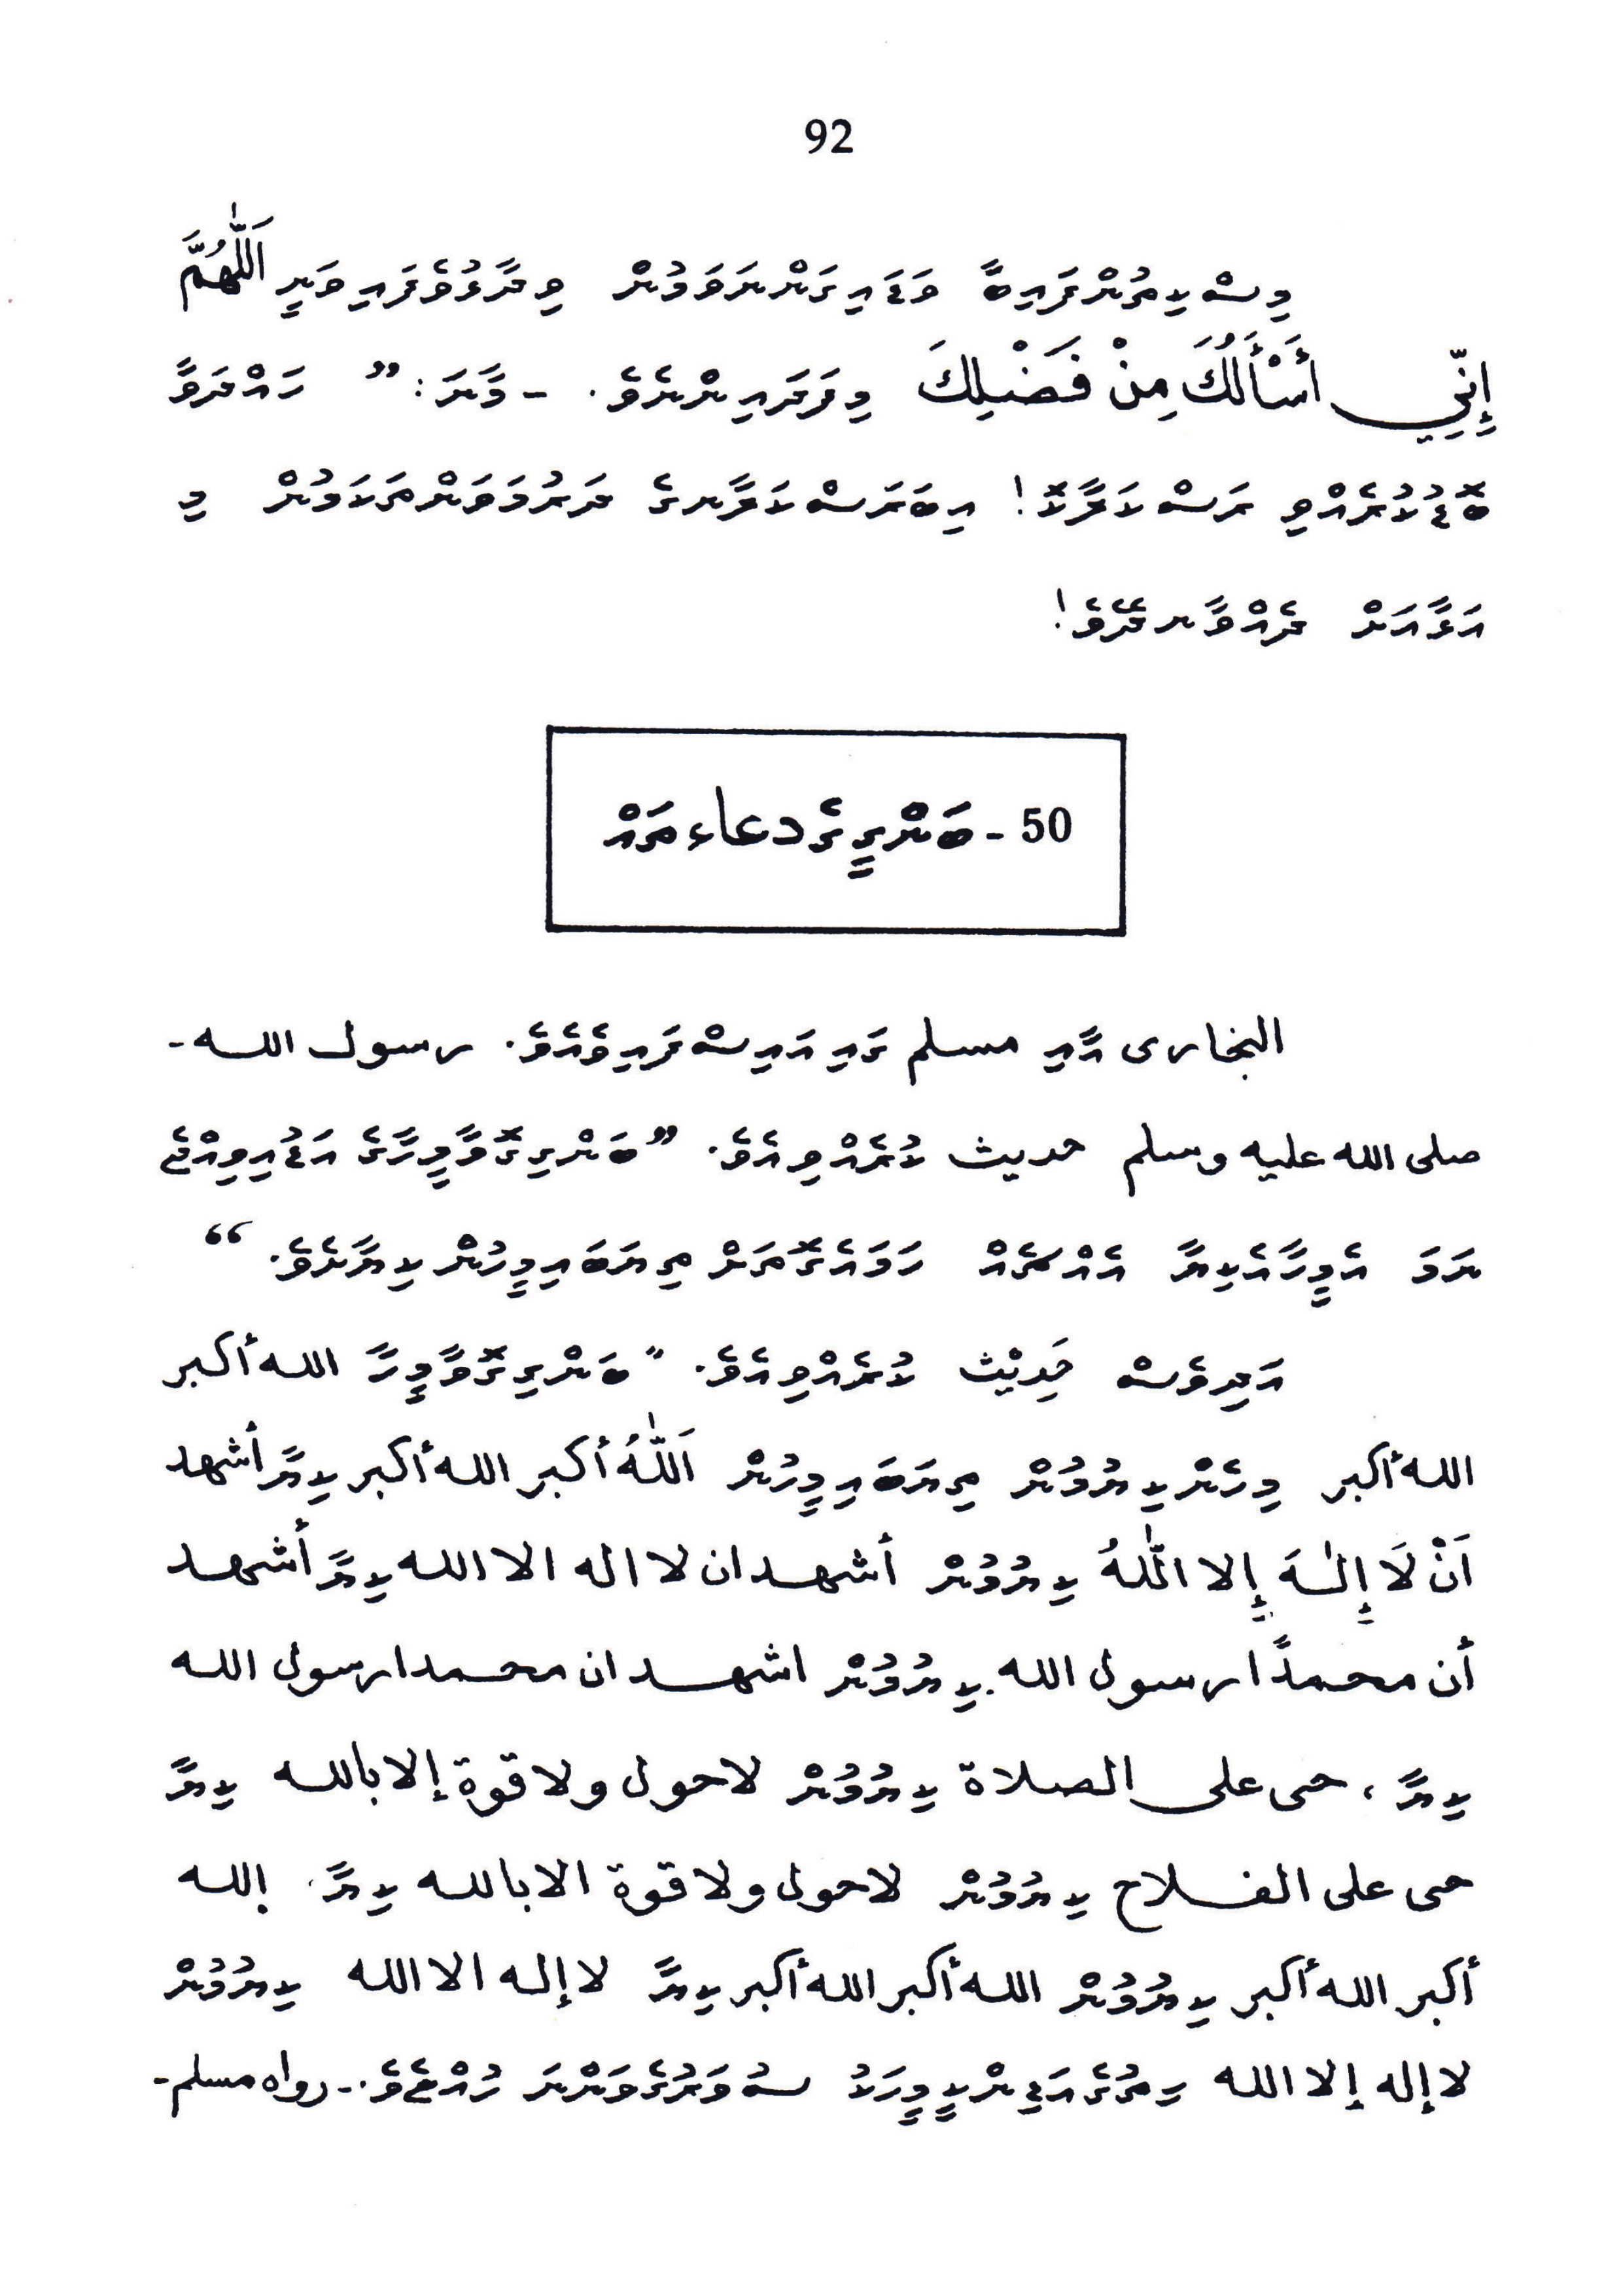 92
މިސްކިތުންފައިބާ ވަޑައިގަންނަވަމުން ވިދާޅުވެފައިވަނީ اَللّٰهُمَّ
إِنِّي أَسْأَلُكَ مِنْ فَضْلِكَ މިފަދައިންނެވެ. - މާނަ: ” ހައްދަވާ
ބޮޑުކުރެއްވި ރަސްކަލާކޮ! އިބަރަސްކަލާނގެ ދަރުމަވަންތަކަމުން މި
އަޅާއަށް ދެއްވާނދޭވެ!
50 - ބަންގީގެ دعاء ތައް
البخارى އާއި مسلم ގައި އައިސްފައިވެއެވެ. رسول الله -
صلى الله عليه وسلم حديث ކުރެއްވިއެވެ. ” ބަންގިގޮވާމީހާގެ އަޑުއިވިއްޖެ
ނަމަ އެމީހާއެކިޔާ އެއްޗެއް ހަމައެގޮތަށް ތިޔަބައިމީހުން ކިޔާށެވެ. “
އަދިވެސް حَدِيْث ކުރެއްވިއެވެ. " ބަންގިގޮވާމީހާ الله أكبر
الله أكبر މިހެންކިޔުމުން ތިޔަބައިމީހުން اَللّٰهُ أكبر الله أكبر ކިޔާ أشهد
اَنْ لَا إِلٰهَ إِلا اللّٰهُ ކިޔުމުން أشهد ان لا اله الا الله ކިޔާ أشهد
أن محمدًا رسول الله ކިޔުމުން اشهد ان محمدا رسول الله
ކިޔާ ، حى على الصلاة ކިޔުމުން لا حول ولا قوة إلا بالله ކިޔާ
حى على الفلاح ކިޔުމުން لا حول ولا قوة الا بالله ކިޔާ، الله
أكبر الله أكبر ކިޔުމުން الله أكبر الله أكبر ކިޔާ لا إله الا الله ކިޔުމުން
لا إله إلا الله ހިތުގެއަޑިންކީމީހަކު ސުވަރުގެވަންނަ ހުއްޓެވެ. - رواه مسلم -